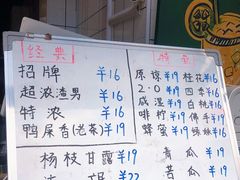 经典
招牌 ¥16
超浓渣男 ¥16
特浓 ¥16
鸭屎香(老茶) ¥19
杨枝甘露 ¥19
¥22
特
原谅 ¥19 桂花 ¥16
2.0 ¥19 四季 ¥16
咸湿 ¥19 白桃 ¥16
啡柠 ¥19 佛手 ¥19
蜂蜜 ¥19
青瓜 ¥19